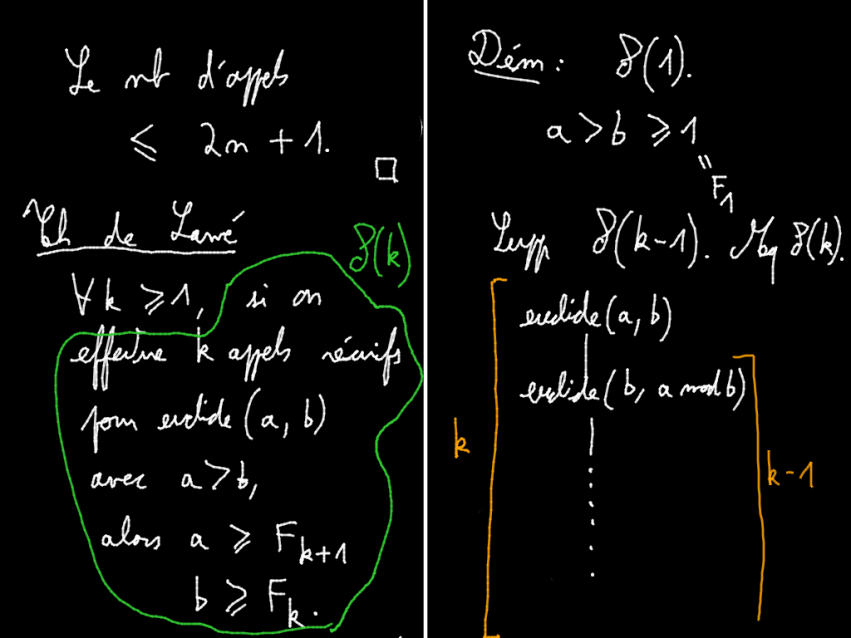 Le nb d'appels
≤ 2n + 1.
□
Th de Lamé
P(k)
∀ k ≥ 1, si on
effectue k appels récursifs
pour euclide (a, b)
avec a > b,
alors a ≥ F_{k+1}
b ≥ F_k.
Dém : P(1).
a > b ≥ 1
"
F_1
Supp P(k-1). Mq P(k).
euclide (a, b)
euclide (b, a mod b)
k
k-1